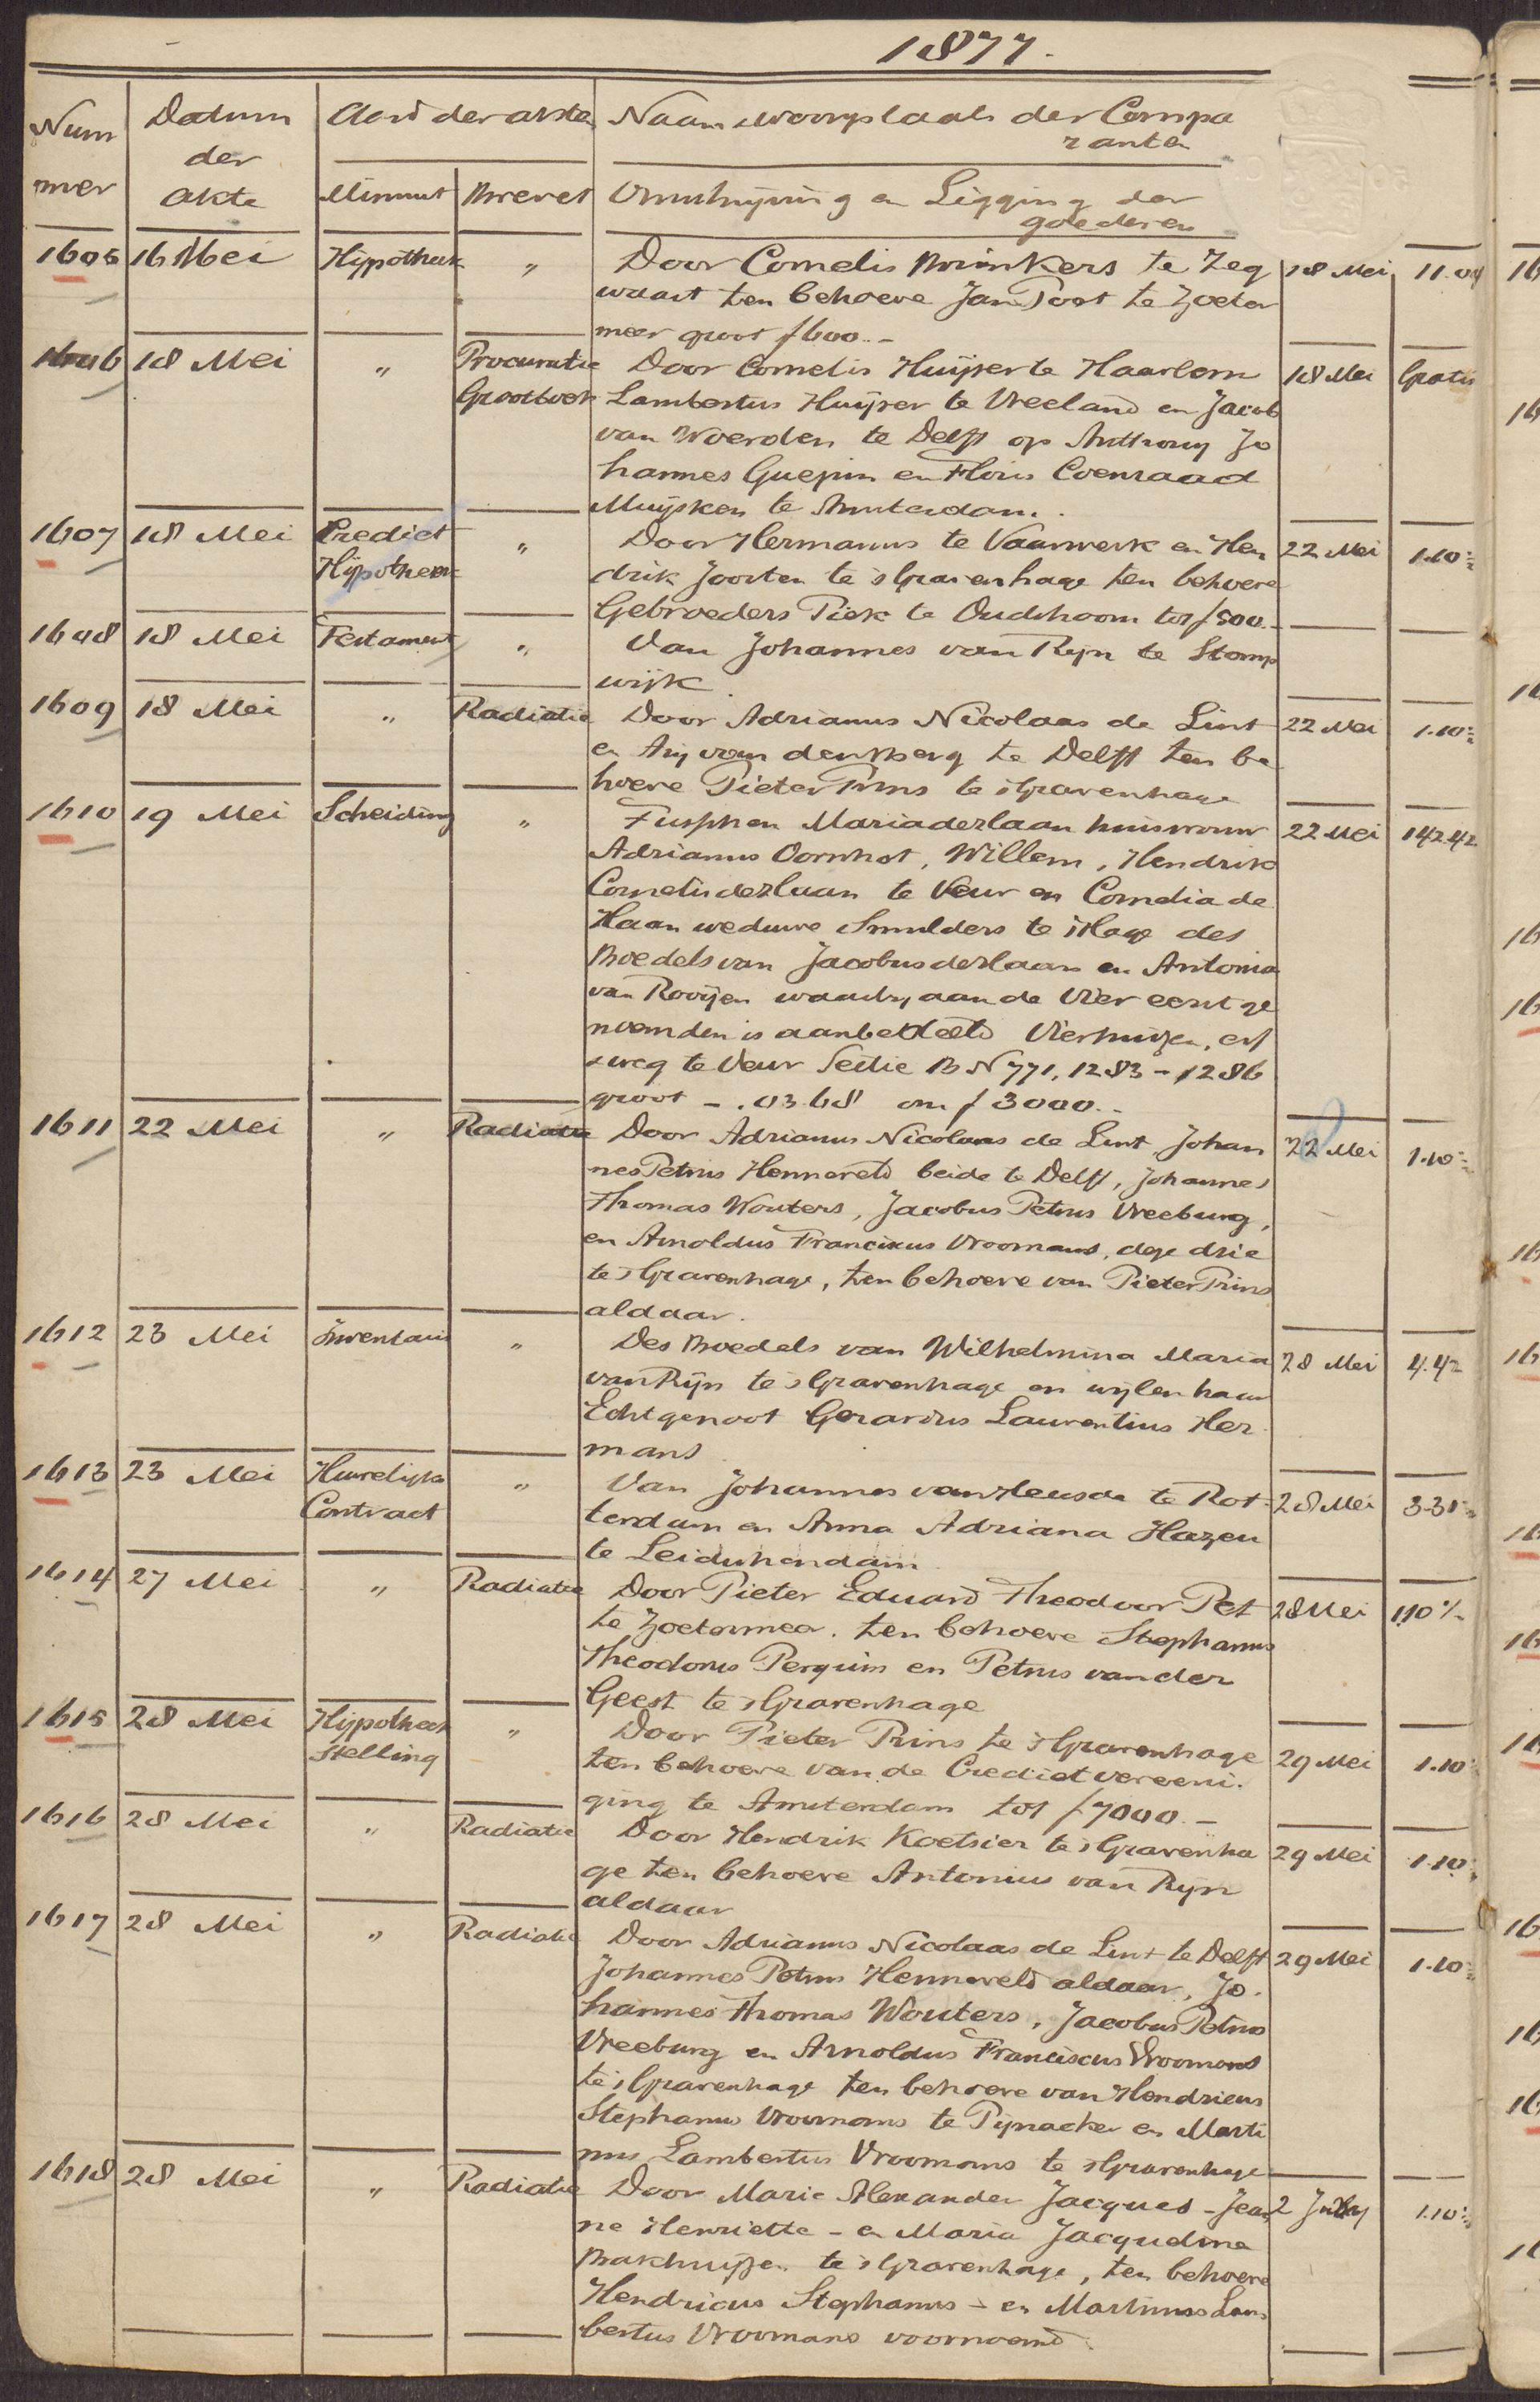 1877.
Nummer Datum der Akte Aard der akten Naam woonplaats der Comparanten
Minuut Brevet Omschrijving en Ligging der goederen
1605 16 Mei Hijpotheek " Door Cornelis Brinkers te Zeg 18 Mei 11.04
waart ten behoeve Jan Poot te Zoeter
meer groot f 600.-
1606 18 Mei " Procuratie Door Cornelis Huijser te Haarlem 18 Mei Gratis
Grootboek Lambertus Huijser te Vreeland en Jacob
van Woerden te Delft op Anthony Jo
hannes Guepin en Floris Coenraad
Muijsken te Amsterdam.
1607 18 Mei Crediet " Door Hermanus te Vaarwerk en Hen 22 Mei 1.10
Hijpotheek drik Joosten te 's Gravenhage ten behoeve
Gebroeders Piek te Oudshoorn tot f 500.-
1608 18 Mei Testament " Van Johannes van Rijn te Stomp
wijk.
1609 18 Mei " Radiatie Door Adrianus Nicolaas de Lint 22 Mei 1.10
en Arij van den Berg te Delft ten be
hoeve Pieter Prins te 's Gravenhage
1610 19 Mei Scheiding " Tusschen Maria derlaan huisvrouw 22 Mei 142.42
Adrianus Oornhot, Willem, Hendrik
Cornelis derlaan te Veur en Cornelia de
Haan weduwe Smulders te 's Hage des
Boedels van Jacobus derlaan en Antonia
van Rooijen waarbij aan de Vier eerst ge
noemden is aanbedeeld Vier huizen, erf
weg te Veur Sectie B N 771, 1283 - 1286
groot - .03.68 om f 3000.-
1611 22 Mei " Radiatie Door Adrianus Nicolaas de Lint Johan 22 Mei 1.10
nes Petrus Henneveld beide te Delft, Johannes
Thomas Wouters, Jacobus Petrus Vreeburg,
en Arnoldus Franciscus Vroomans, deze drie
te 's Gravenhage, ten behoeve van Pieter Prins
aldaar.
1612 23 Mei Inventaris " Des Boedels van Wilhelmina Maria 28 Mei 4.42
van Rijn te 's Gravenhage en wijlen haar
Echtgenoot Gerardus Laurentius Her
mans
1613 23 Mei Huwelijks " Van Johannes van Heusde te Rot- 28 Mei 3.31
Contract terdam en Anna Adriana Hazen
te Leidschendam
1614 27 Mei " Radiatie Door Pieter Eduard Theodoor Pet 28 Mei 1.10
te Zoetermeer. ten behoeve Stephanus
Theodorus Perquin en Petrus van der
Geest te 's Gravenhage
1615 28 Mei Hijpotheek " Door Pieter Prins te 's Gravenhage 29 Mei 1.10
Stelling ten behoeve van de Crediet vereeni-
ging te Amsterdam tot f 7000.-
1616 28 Mei " Radiatie Door Hendrik Koetsier te 's Gravenha 29 Mei 1.10
ge ten behoeve Antonius van Rijn
aldaar
1617 28 Mei " Radiatie Door Adrianus Nicolaas de Lint te Delft 29 Mei 1.10
Johannes Petrus Henneveld aldaar, Jo-
hannes Thomas Wouters, Jacobus Petrus
Vreeburg en Arnoldus Franciscus Vroomans
te 's Gravenhage ten behoeve van Hendricus
Stephanus Vroomans te Pijnacker en Marti
nus Lambertus Vroomans te 's Gravenhage
1618 28 Mei " Radiatie Door Marie Alexander Jacques - Jean 2 July 1.10
ne Henriette - en Maria Jacqueline
Bakhuijzen te 's Gravenhage, ten behoeve
Hendricus Stephanus - en Martinus Lam
bertus Vroomans voornoemd.